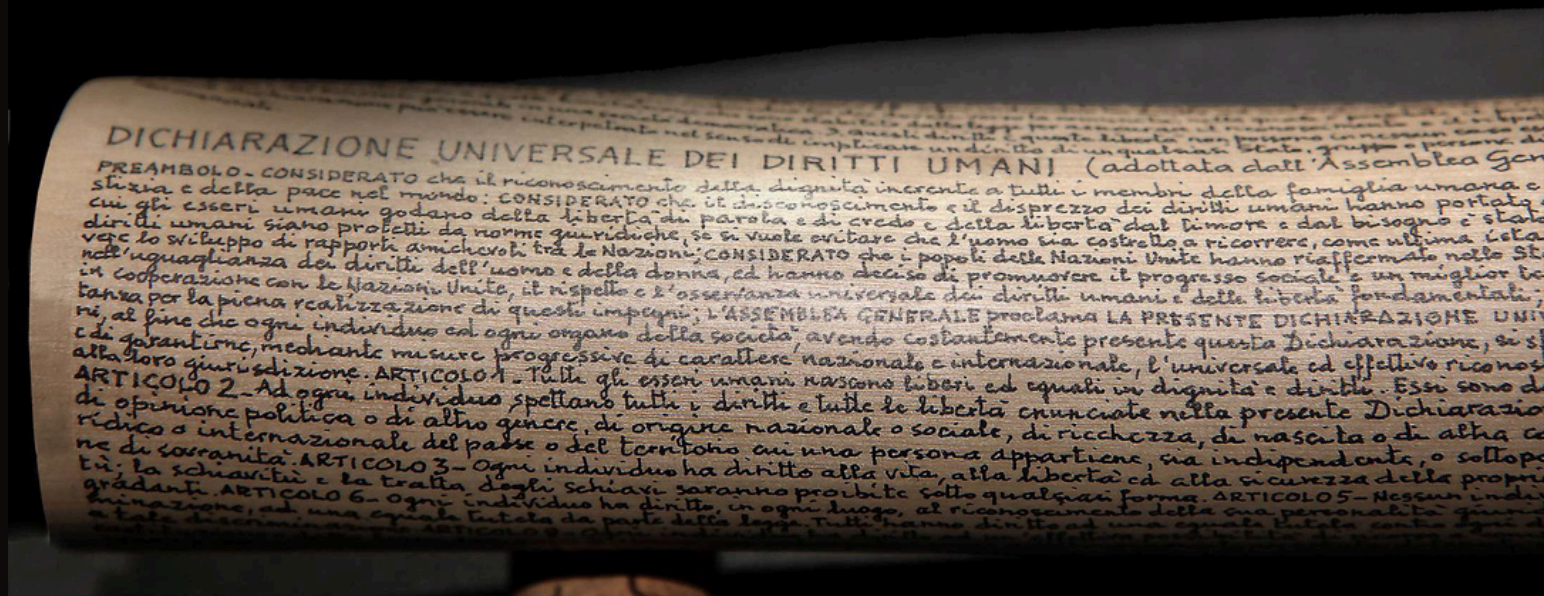 interpretato nel senso di implicare un diritto di un qualsiasi Stato, gruppo o persona di
DICHIARAZIONE UNIVERSALE DEI DIRITTI UMANI (adottata dall'Assemblea Gen
PREAMBOLO - CONSIDERATO che il riconoscimento della dignità inerente a tutti i membri della famiglia umana e
stizia e della pace nel mondo; CONSIDERATO che il disconoscimento e il disprezzo dei diritti umani hanno portato
cui gli esseri umani godano della libertà di parola e di credo e della libertà dal timore e dal bisogno è stat
diritti umani siano protetti da norme giuridiche, se si vuole evitare che l'uomo sia costretto a ricorrere, come ultima ista
vere lo sviluppo di rapporti amichevoli tra le Nazioni; CONSIDERATO che i popoli delle Nazioni Unite hanno riaffermato nello St
nell'uguaglianza dei diritti dell'uomo e della donna, ed hanno deciso di promuovere il progresso sociale e un miglior te
in cooperazione con le Nazioni Unite, il rispetto e l'osservanza universale dei diritti umani e delle libertà fondamentali;
tanza per la piena realizzazione di questi impegni; L'ASSEMBLEA GENERALE proclama LA PRESENTE DICHIARAZIONE UNIV
ni, al fine che ogni individuo ed ogni organo della società, avendo costantemente presente questa Dichiarazione, si s
e di garantirne, mediante misure progressive di carattere nazionale e internazionale, l'universale ed effettivo riconos
alla loro giurisdizione. ARTICOLO 1 - Tutti gli esseri umani nascono liberi ed eguali in dignità e diritti. Essi sono d
ARTICOLO 2 - Ad ogni individuo spettano tutti i diritti e tutte le libertà enunciate nella presente Dichiarazio
di opinione politica o di altro genere, di origine nazionale o sociale, di ricchezza, di nascita o di altra co
ridico o internazionale del paese o del territorio cui una persona appartiene, sia indipendente, o sottopo
ne di sovranità. ARTICOLO 3 - Ogni individuo ha diritto alla vita, alla libertà ed alla sicurezza della propri
tù; la schiavitù e la tratta degli schiavi saranno proibite sotto qualsiasi forma. ARTICOLO 5 - Nessun indiv
gradanti. ARTICOLO 6 - Ogni individuo ha diritto, in ogni luogo, al riconoscimento della sua personalità giuri
minazione, ad una eguale tutela da parte della legge. Tutti hanno diritto ad una eguale tutela contro ogni